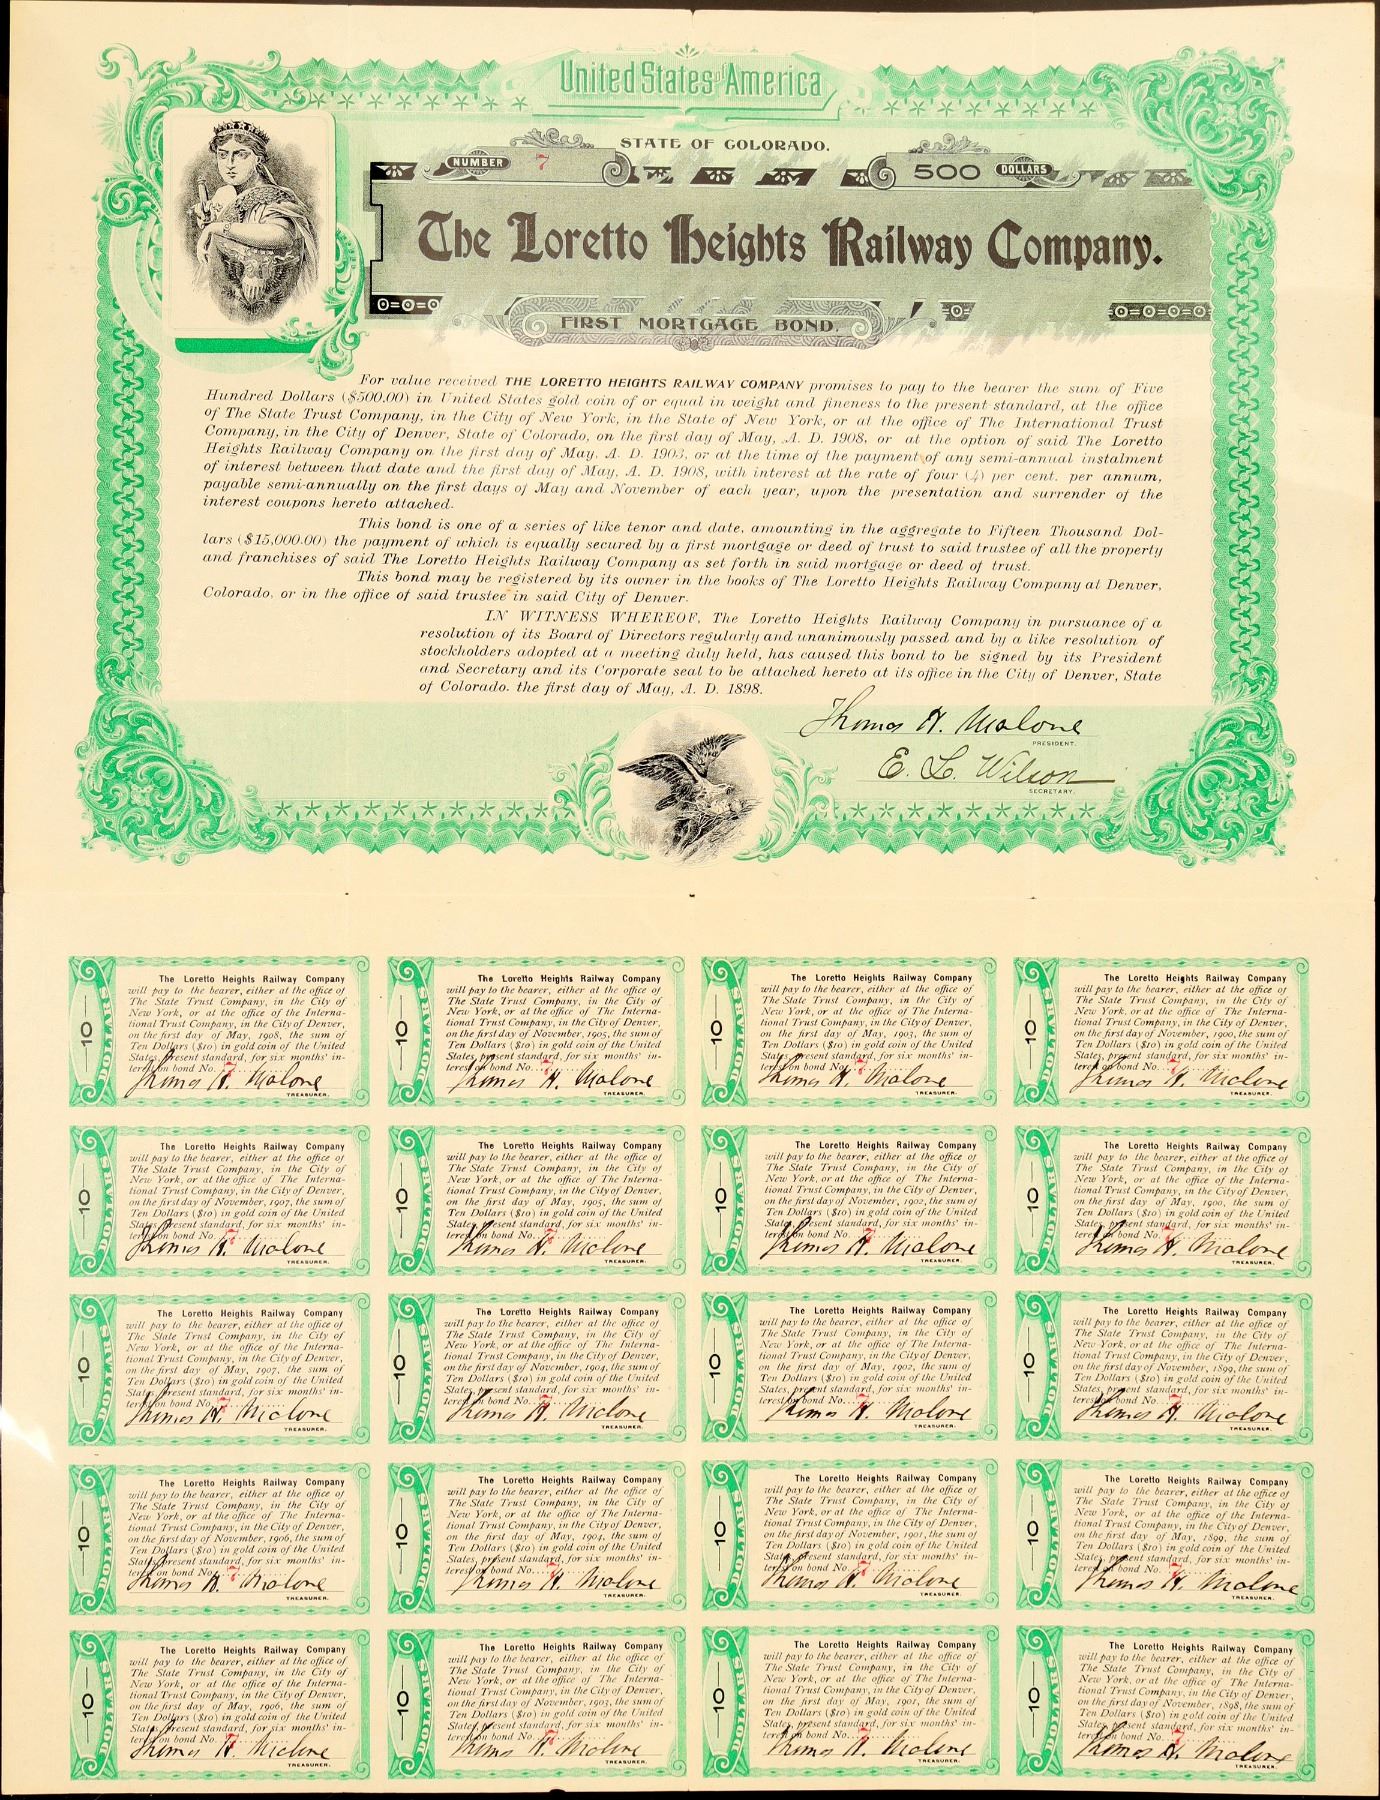 United States of America
STATE OF COLORADO.
NUMBER 7 500 DOLLARS
The Loretto Heights Railway Company.
FIRST MORTGAGE BOND.
For value received THE LORETTO HEIGHTS RAILWAY COMPANY promises to pay to the bearer the sum of Five
Hundred Dollars ($500.00) in United States gold coin of or equal in weight and fineness to the present standard, at the office
of The State Trust Company, in the City of New York, in the State of New York, or at the office of The International Trust
Company, in the City of Denver, State of Colorado, on the first day of May, A. D. 1908, or at the option of said The Loretto
Heights Railway Company on the first day of May, A. D. 1903, or at the time of the payment of any semi-annual instalment
of interest between that date and the first day of May, A. D. 1908, with interest at the rate of four (4) per cent. per annum,
payable semi-annually on the first days of May and November of each year, upon the presentation and surrender of the
interest coupons hereto attached.
This bond is one of a series of like tenor and date, amounting in the aggregate to Fifteen Thousand Dol-
lars ($15,000.00) the payment of which is equally secured by a first mortgage or deed of trust to said trustee of all the property
and franchises of said The Loretto Heights Railway Company as set forth in said mortgage or deed of trust.
This bond may be registered by its owner in the books of The Loretto Heights Railway Company at Denver,
Colorado, or in the office of said trustee in said City of Denver.
IN WITNESS WHEREOF, The Loretto Heights Railway Company in pursuance of a
resolution of its Board of Directors regularly and unanimously passed and by a like resolution of
stockholders adopted at a meeting duly held, has caused this bond to be signed by its President
and Secretary and its Corporate seal to be attached hereto at its office in the City of Denver, State
of Colorado. the first day of May, A. D. 1898.
Thomas H. Malone
PRESIDENT.
E. L. Wilson
SECRETARY.
10 DOLLARS
The Loretto Heights Railway Company
will pay to the bearer, either at the office of
The State Trust Company, in the City of
New York, or at the office of The Interna-
tional Trust Company, in the City of Denver,
on the first day of May, 1908, the sum of
Ten Dollars ($10) in gold coin of the United
States, present standard, for six months' in-
terest on bond No. 7
Thomas H. Malone
TREASURER.
10 DOLLARS
The Loretto Heights Railway Company
will pay to the bearer, either at the office of
The State Trust Company, in the City of
New York, or at the office of The Interna-
tional Trust Company, in the City of Denver,
on the first day of November, 1905, the sum of
Ten Dollars ($10) in gold coin of the United
States, present standard, for six months' in-
terest on bond No. 7
Thomas H. Malone
TREASURER.
10 DOLLARS
The Loretto Heights Railway Company
will pay to the bearer, either at the office of
The State Trust Company, in the City of
New York, or at the office of The Interna-
tional Trust Company, in the City of Denver,
on the first day of May, 1903, the sum of
Ten Dollars ($10) in gold coin of the United
States, present standard, for six months' in-
terest on bond No. 7
Thomas H. Malone
TREASURER.
10 DOLLARS
The Loretto Heights Railway Company
will pay to the bearer, either at the office of
The State Trust Company, in the City of
New York, or at the office of The Interna-
tional Trust Company, in the City of Denver,
on the first day of November, 1900, the sum of
Ten Dollars ($10) in gold coin of the United
States, present standard, for six months' in-
terest on bond No. 7
Thomas H. Malone
TREASURER.
10 DOLLARS
The Loretto Heights Railway Company
will pay to the bearer, either at the office of
The State Trust Company, in the City of
New York, or at the office of The Interna-
tional Trust Company, in the City of Denver,
on the first day of November, 1907, the sum of
Ten Dollars ($10) in gold coin of the United
States, present standard, for six months' in-
terest on bond No. 7
Thomas H. Malone
TREASURER.
10 DOLLARS
The Loretto Heights Railway Company
will pay to the bearer, either at the office of
The State Trust Company, in the City of
New York, or at the office of The Interna-
tional Trust Company, in the City of Denver,
on the first day of May, 1905, the sum of
Ten Dollars ($10) in gold coin of the United
States, present standard, for six months' in-
terest on bond No. 7
Thomas H. Malone
TREASURER.
10 DOLLARS
The Loretto Heights Railway Company
will pay to the bearer, either at the office of
The State Trust Company, in the City of
New York, or at the office of The Interna-
tional Trust Company, in the City of Denver,
on the first day of November, 1902, the sum of
Ten Dollars ($10) in gold coin of the United
States, present standard, for six months' in-
terest on bond No. 7
Thomas H. Malone
TREASURER.
10 DOLLARS
The Loretto Heights Railway Company
will pay to the bearer, either at the office of
The State Trust Company, in the City of
New York, or at the office of The Interna-
tional Trust Company, in the City of Denver,
on the first day of May, 1900, the sum of
Ten Dollars ($10) in gold coin of the United
States, present standard, for six months' in-
terest on bond No. 7
Thomas H. Malone
TREASURER.
10 DOLLARS
The Loretto Heights Railway Company
will pay to the bearer, either at the office of
The State Trust Company, in the City of
New York, or at the office of The Interna-
tional Trust Company, in the City of Denver,
on the first day of May, 1907, the sum of
Ten Dollars ($10) in gold coin of the United
States, present standard, for six months' in-
terest on bond No. 7
Thomas H. Malone
TREASURER.
10 DOLLARS
The Loretto Heights Railway Company
will pay to the bearer, either at the office of
The State Trust Company, in the City of
New York, or at the office of The Interna-
tional Trust Company, in the City of Denver,
on the first day of November, 1904, the sum of
Ten Dollars ($10) in gold coin of the United
States, present standard, for six months' in-
terest on bond No. 7
Thomas H. Malone
TREASURER.
10 DOLLARS
The Loretto Heights Railway Company
will pay to the bearer, either at the office of
The State Trust Company, in the City of
New York, or at the office of The Interna-
tional Trust Company, in the City of Denver,
on the first day of May, 1902, the sum of
Ten Dollars ($10) in gold coin of the United
States, present standard, for six months' in-
terest on bond No. 7
Thomas H. Malone
TREASURER.
10 DOLLARS
The Loretto Heights Railway Company
will pay to the bearer, either at the office of
The State Trust Company, in the City of
New York, or at the office of The Interna-
tional Trust Company, in the City of Denver,
on the first day of November, 1899, the sum of
Ten Dollars ($10) in gold coin of the United
States, present standard, for six months' in-
terest on bond No. 7
Thomas H. Malone
TREASURER.
10 DOLLARS
The Loretto Heights Railway Company
will pay to the bearer, either at the office of
The State Trust Company, in the City of
New York, or at the office of The Interna-
tional Trust Company, in the City of Denver,
on the first day of November, 1906, the sum of
Ten Dollars ($10) in gold coin of the United
States, present standard, for six months' in-
terest on bond No. 7
Thomas H. Malone
TREASURER.
10 DOLLARS
The Loretto Heights Railway Company
will pay to the bearer, either at the office of
The State Trust Company, in the City of
New York, or at the office of The Interna-
tional Trust Company, in the City of Denver,
on the first day of May, 1904, the sum of
Ten Dollars ($10) in gold coin of the United
States, present standard, for six months' in-
terest on bond No. 7
Thomas H. Malone
TREASURER.
10 DOLLARS
The Loretto Heights Railway Company
will pay to the bearer, either at the office of
The State Trust Company, in the City of
New York, or at the office of The Interna-
tional Trust Company, in the City of Denver,
on the first day of November, 1901, the sum of
Ten Dollars ($10) in gold coin of the United
States, present standard, for six months' in-
terest on bond No. 7
Thomas H. Malone
TREASURER.
10 DOLLARS
The Loretto Heights Railway Company
will pay to the bearer, either at the office of
The State Trust Company, in the City of
New York, or at the office of The Interna-
tional Trust Company, in the City of Denver,
on the first day of May, 1899, the sum of
Ten Dollars ($10) in gold coin of the United
States, present standard, for six months' in-
terest on bond No. 7
Thomas H. Malone
TREASURER.
10 DOLLARS
The Loretto Heights Railway Company
will pay to the bearer, either at the office of
The State Trust Company, in the City of
New York, or at the office of The Interna-
tional Trust Company, in the City of Denver,
on the first day of May, 1906, the sum of
Ten Dollars ($10) in gold coin of the United
States, present standard, for six months' in-
terest on bond No. 7
Thomas H. Malone
TREASURER.
10 DOLLARS
The Loretto Heights Railway Company
will pay to the bearer, either at the office of
The State Trust Company, in the City of
New York, or at the office of The Interna-
tional Trust Company, in the City of Denver,
on the first day of November, 1903, the sum of
Ten Dollars ($10) in gold coin of the United
States, present standard, for six months' in-
terest on bond No. 7
Thomas H. Malone
TREASURER.
10 DOLLARS
The Loretto Heights Railway Company
will pay to the bearer, either at the office of
The State Trust Company, in the City of
New York, or at the office of The Interna-
tional Trust Company, in the City of Denver,
on the first day of May, 1901, the sum of
Ten Dollars ($10) in gold coin of the United
States, present standard, for six months' in-
terest on bond No. 7
Thomas H. Malone
TREASURER.
10 DOLLARS
The Loretto Heights Railway Company
will pay to the bearer, either at the office of
The State Trust Company, in the City of
New York, or at the office of The Interna-
tional Trust Company, in the City of Denver,
on the first day of November, 1898, the sum of
Ten Dollars ($10) in gold coin of the United
States, present standard, for six months' in-
terest on bond No. 7
Thomas H. Malone
TREASURER.